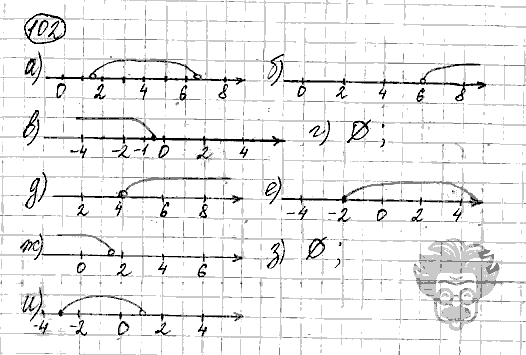 102
а) 0 2 4 6 8
б) 0 2 4 6 8
в) -4 -2 -1 0 2 4
г) Ø ;
д) 2 4 6 8
е) -4 -2 0 2 4
ж) 0 2 4 6
з) Ø ;
и) -4 -2 0 2 4